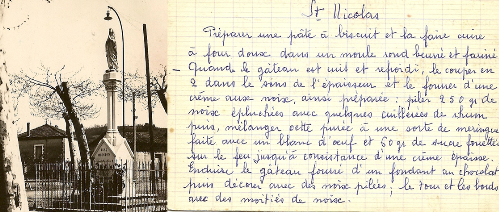 St Nicolas
Préparer une pâte à biscuit et la faire cuire
à four doux dans un moule rond beurré et fariné
Quand le gâteau est cuit et refroidi, le couper en
2 dans le sens de l'épaisseur et le fourrer d'une
crème aux noix, ainsi préparée : piler 250 gr de
noix épluchées avec quelques cuillerées de rhum
puis, mélanger cette purée à une sorte de meringue
faite avec un blanc d'œuf et 60 gr de sucre fouettés
sur le feu jusqu'à consistance d'une crème épaisse.
Enduire le gâteau fourré d'un fondant au chocolat
puis décorer avec des noix pilées, le tour et les bords
avec des moitiés de noix.